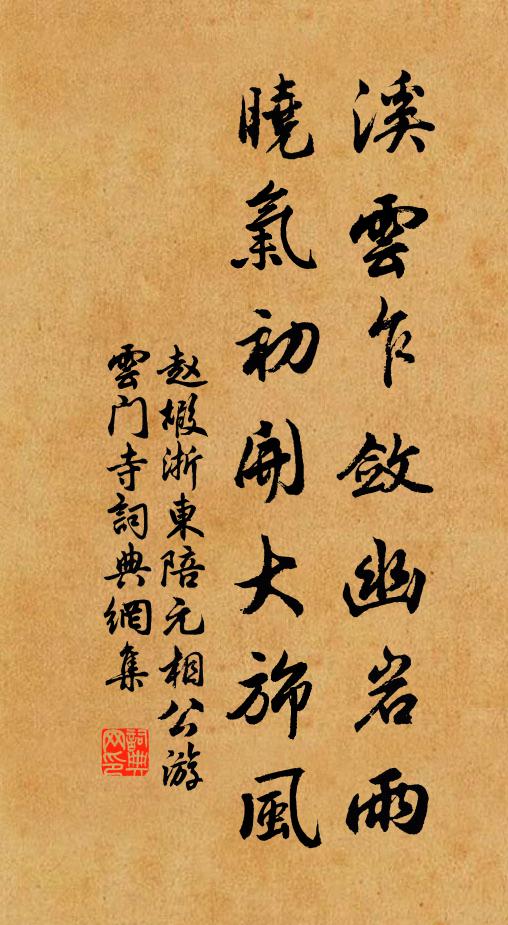 溪雲乍斂幽岩雨
曉氣初開大斾風
赵嘏浙東陪元相公游
雲门寺詞典網集
詞典
网印